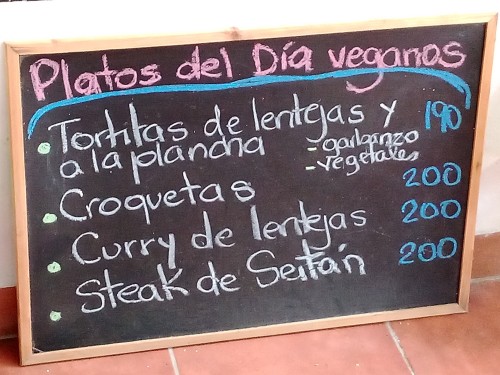 Platos del Día veganos
Tortitas de lentejas y 190
a la plancha - garbanzo
- vegetales
Croquetas 200
Curry de lentejas 200
Steak de Seitán 200